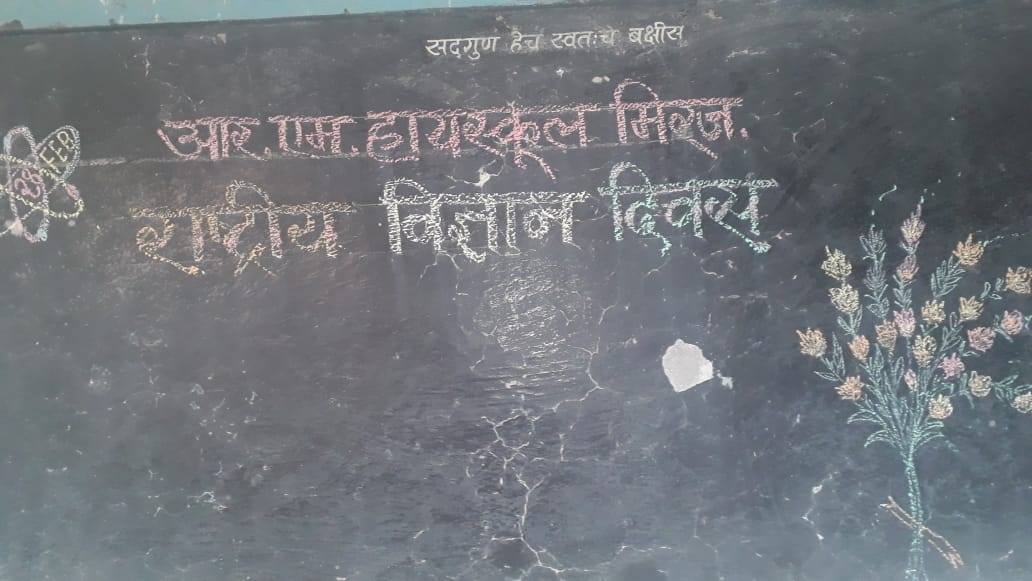 सद्गुण हेच स्वतःचे बक्षीस
आर.एम.हायस्कूल मिरज.
28 FEB
राष्ट्रीय विज्ञान दिवस